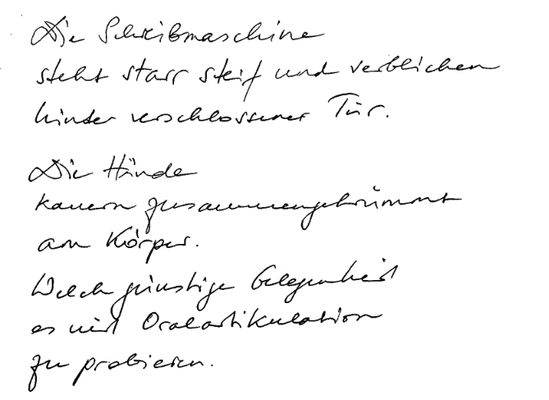 Die Schreibmaschine
steht starr steif und verblichen
hinter verschlossener Tür.
Die Hände
kauern zusammengekrümmt
am Körper.
Welch günstige Gelegenheit
es mit Oralartikulation
zu probieren.